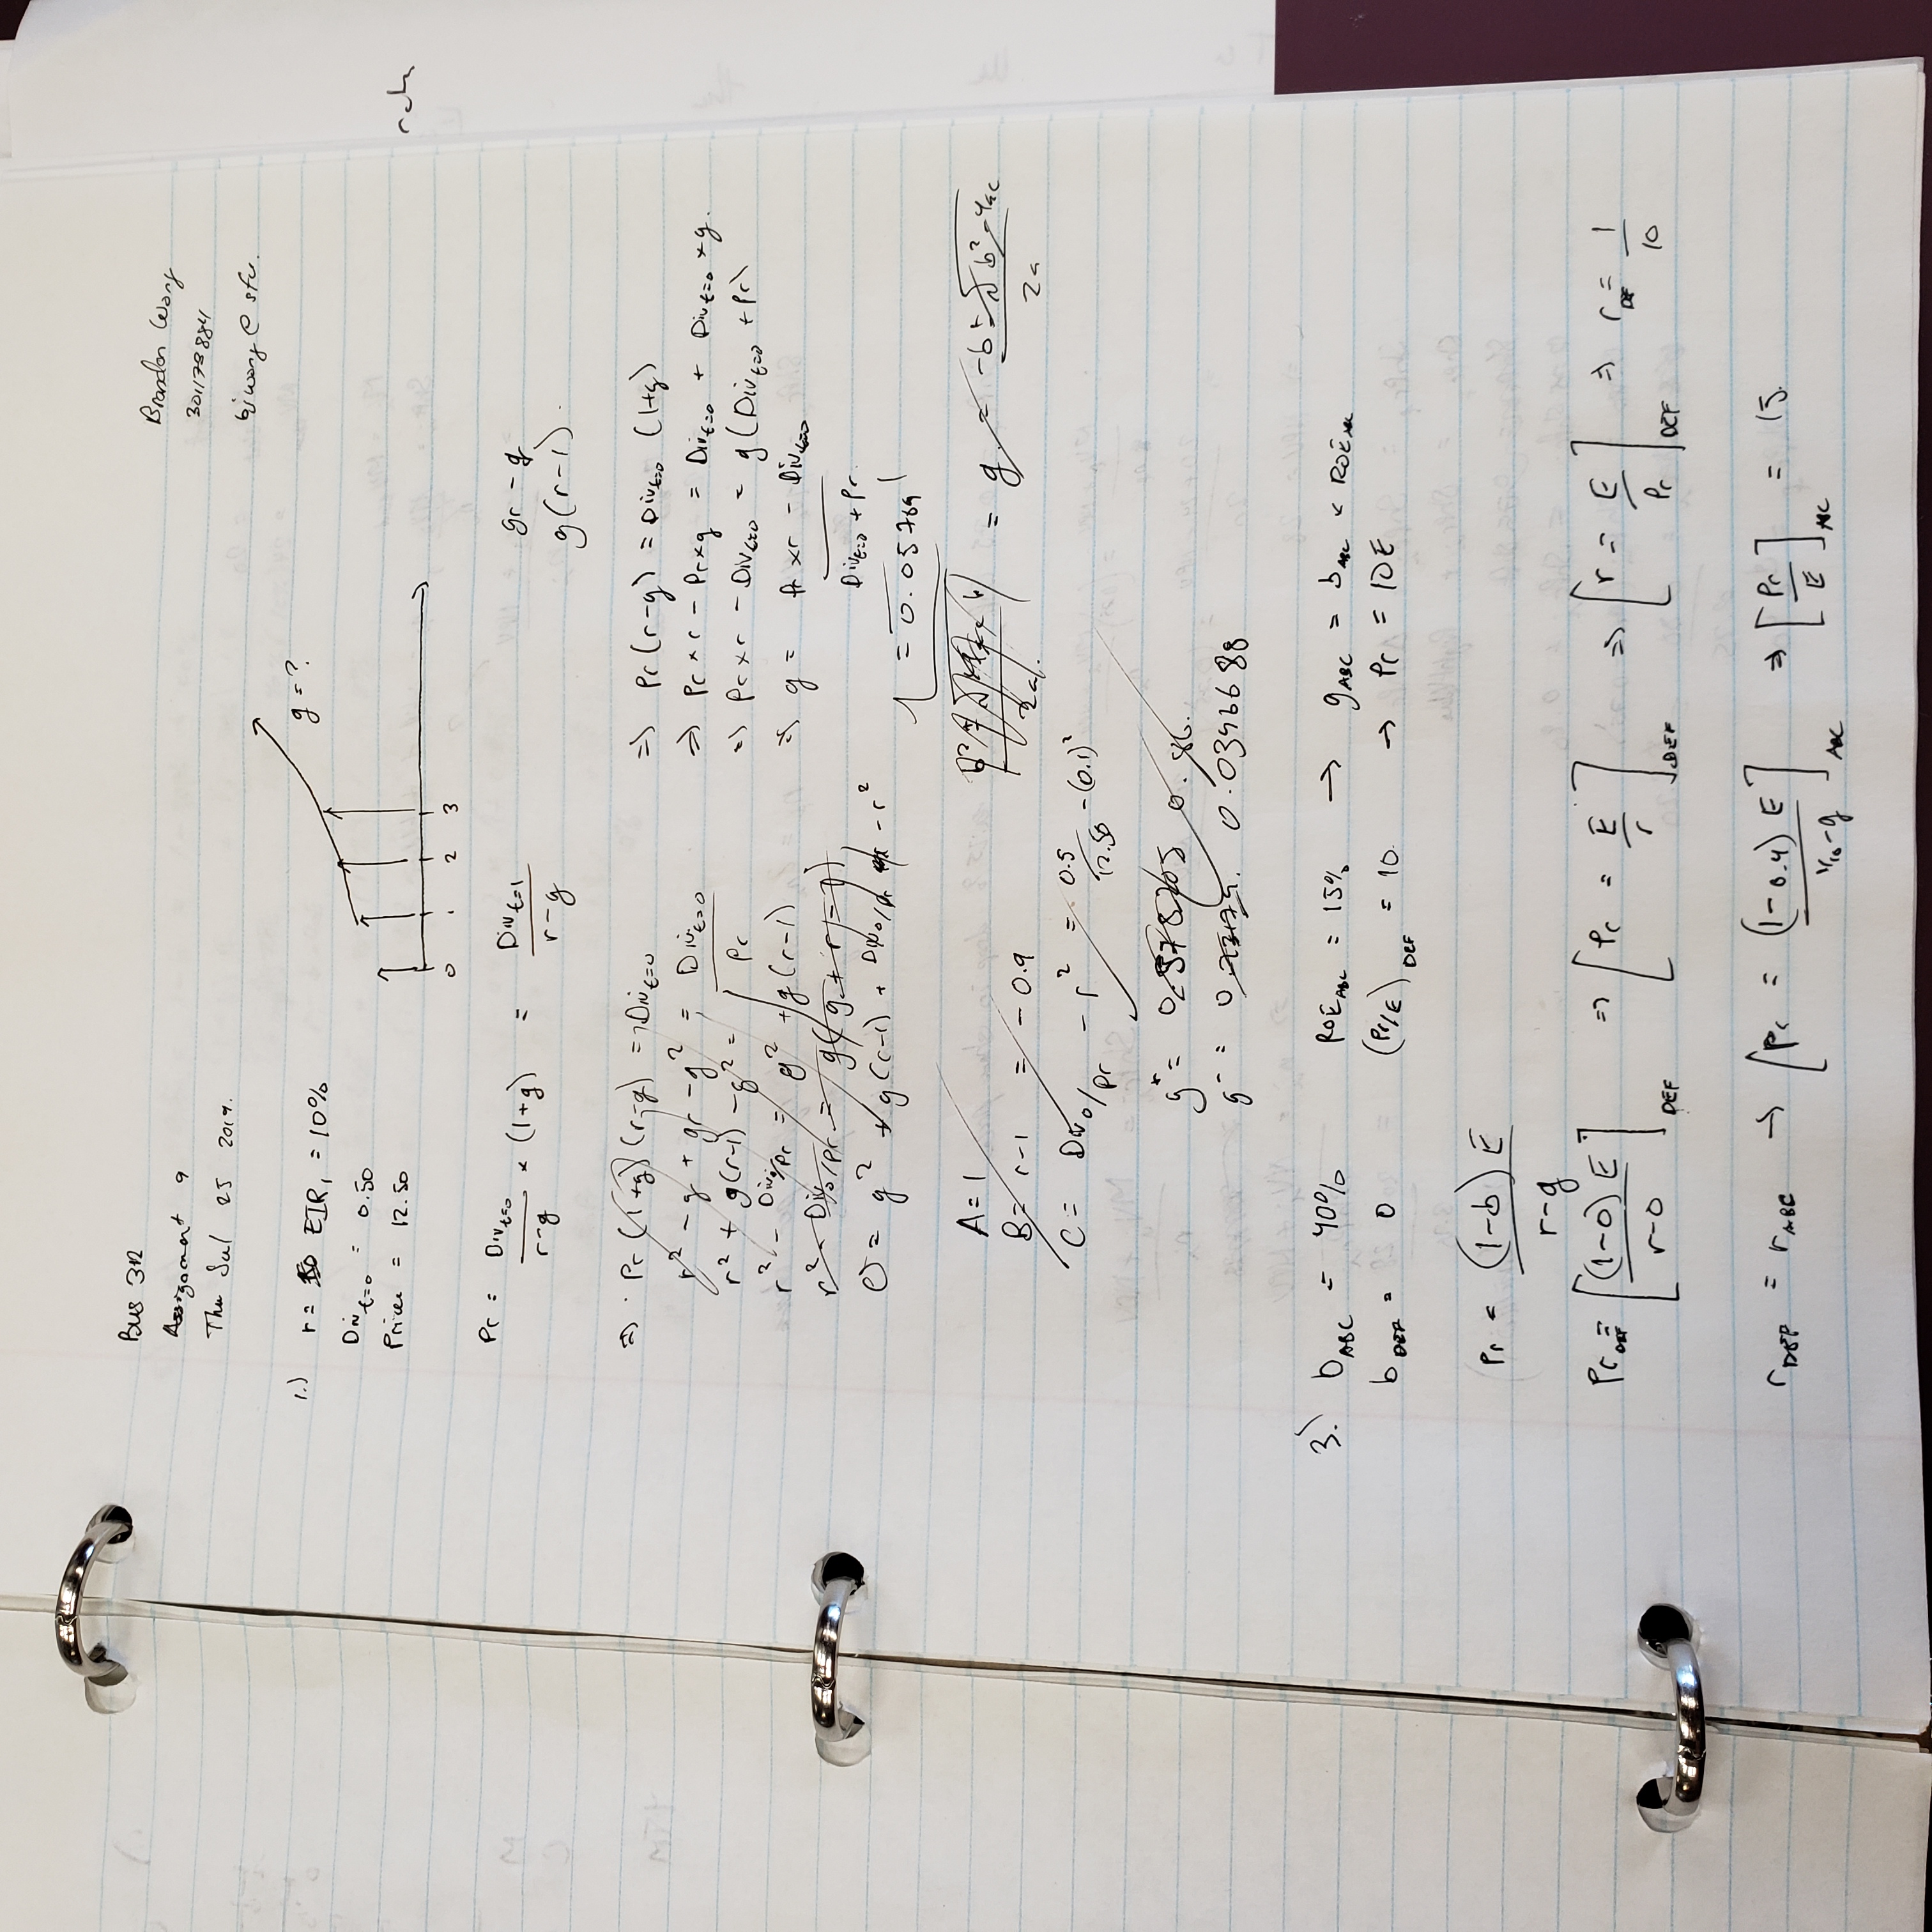 Bus 312
Assignment 9
Thu Jul 25 2019.
Brandon Wong
301178884
bjwong @ sfu.
1.) r = EIR₁ = 10%
Div t=0 = 0.50
Price = 12.50
g = ?
0 1 2 3
Pr = Div t=0 / (r-g) × (1+g) = Div t=1 / (r-g)
gr - g
g(r-1).
⇒ Pr (1+g)(r-g) = Div t=0
r² - g + gr - g² = Div t=0 / Pr
r² + g(r-1) - g² =
r² - Div₀/Pr = g² + g(r-1)
r² - Div₀/Pr = g(g + r - 1)
0 = g² + g(r-1) + Div₀/Pr - r²
⇒ Pr(r-g) = Div t=0 (1+g)
⇒ Pr × r - Pr × g = Div t=0 + Div t=0 × g.
⇒ Pr × r - Div t=0 = g(Div t=0 + Pr)
⇒ g = Pr × r - Div t=0 / Div t=0 + Pr.
= 0.05769
A = 1
B = r-1 = -0.9
C = Div₀/Pr - r² = 0.5/12.50 - (0.1)²
2a.
= g = -b ± √b² - 4ac / 2a
g⁺ = 0.86.
g⁻ = 0.0346688
3.) b ABC = 40% ROE ABC = 15% → g ABC = b ABC × ROE ABC
b DEF = 0 (Pr/E) DEF = 10. → Pr = 10E
Pr = (1-b) E / r-g
Pr DEF = [(1-0) E / r-0] DEF ⇒ [Pr = E / r] DEF ⇒ [r = E / Pr] DEF ⇒ r DEF = 1 / 10
r DEF = r ABC → [Pr = (1-0.4) E / 1/10-g] ABC ⇒ [Pr / E] ABC = 15.